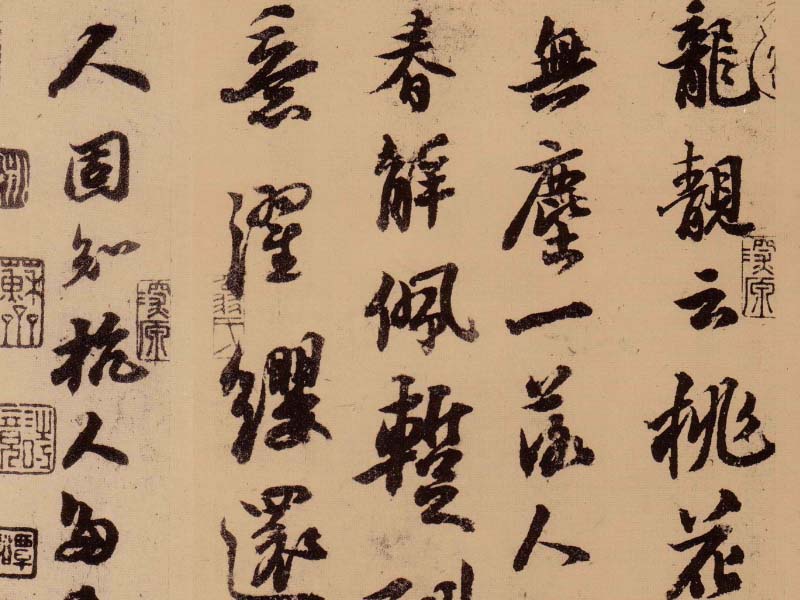 龍靚云桃花
無塵一落人
春解佩蹔
意濯纓還
人固知杭人多